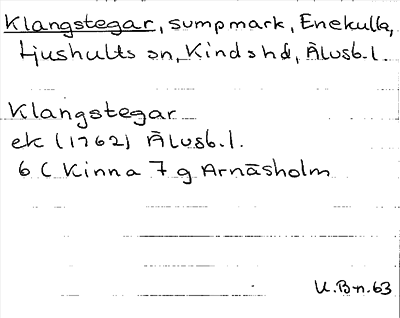 Klangstegar, sumpmark, Enekulla,
Ljushults sn, Kinds hd, Älvsb.l.
Klangstegar
ek (1762) Älvsb.l.
6 C Kinna 7 g Arnäsholm
U.Bn.63